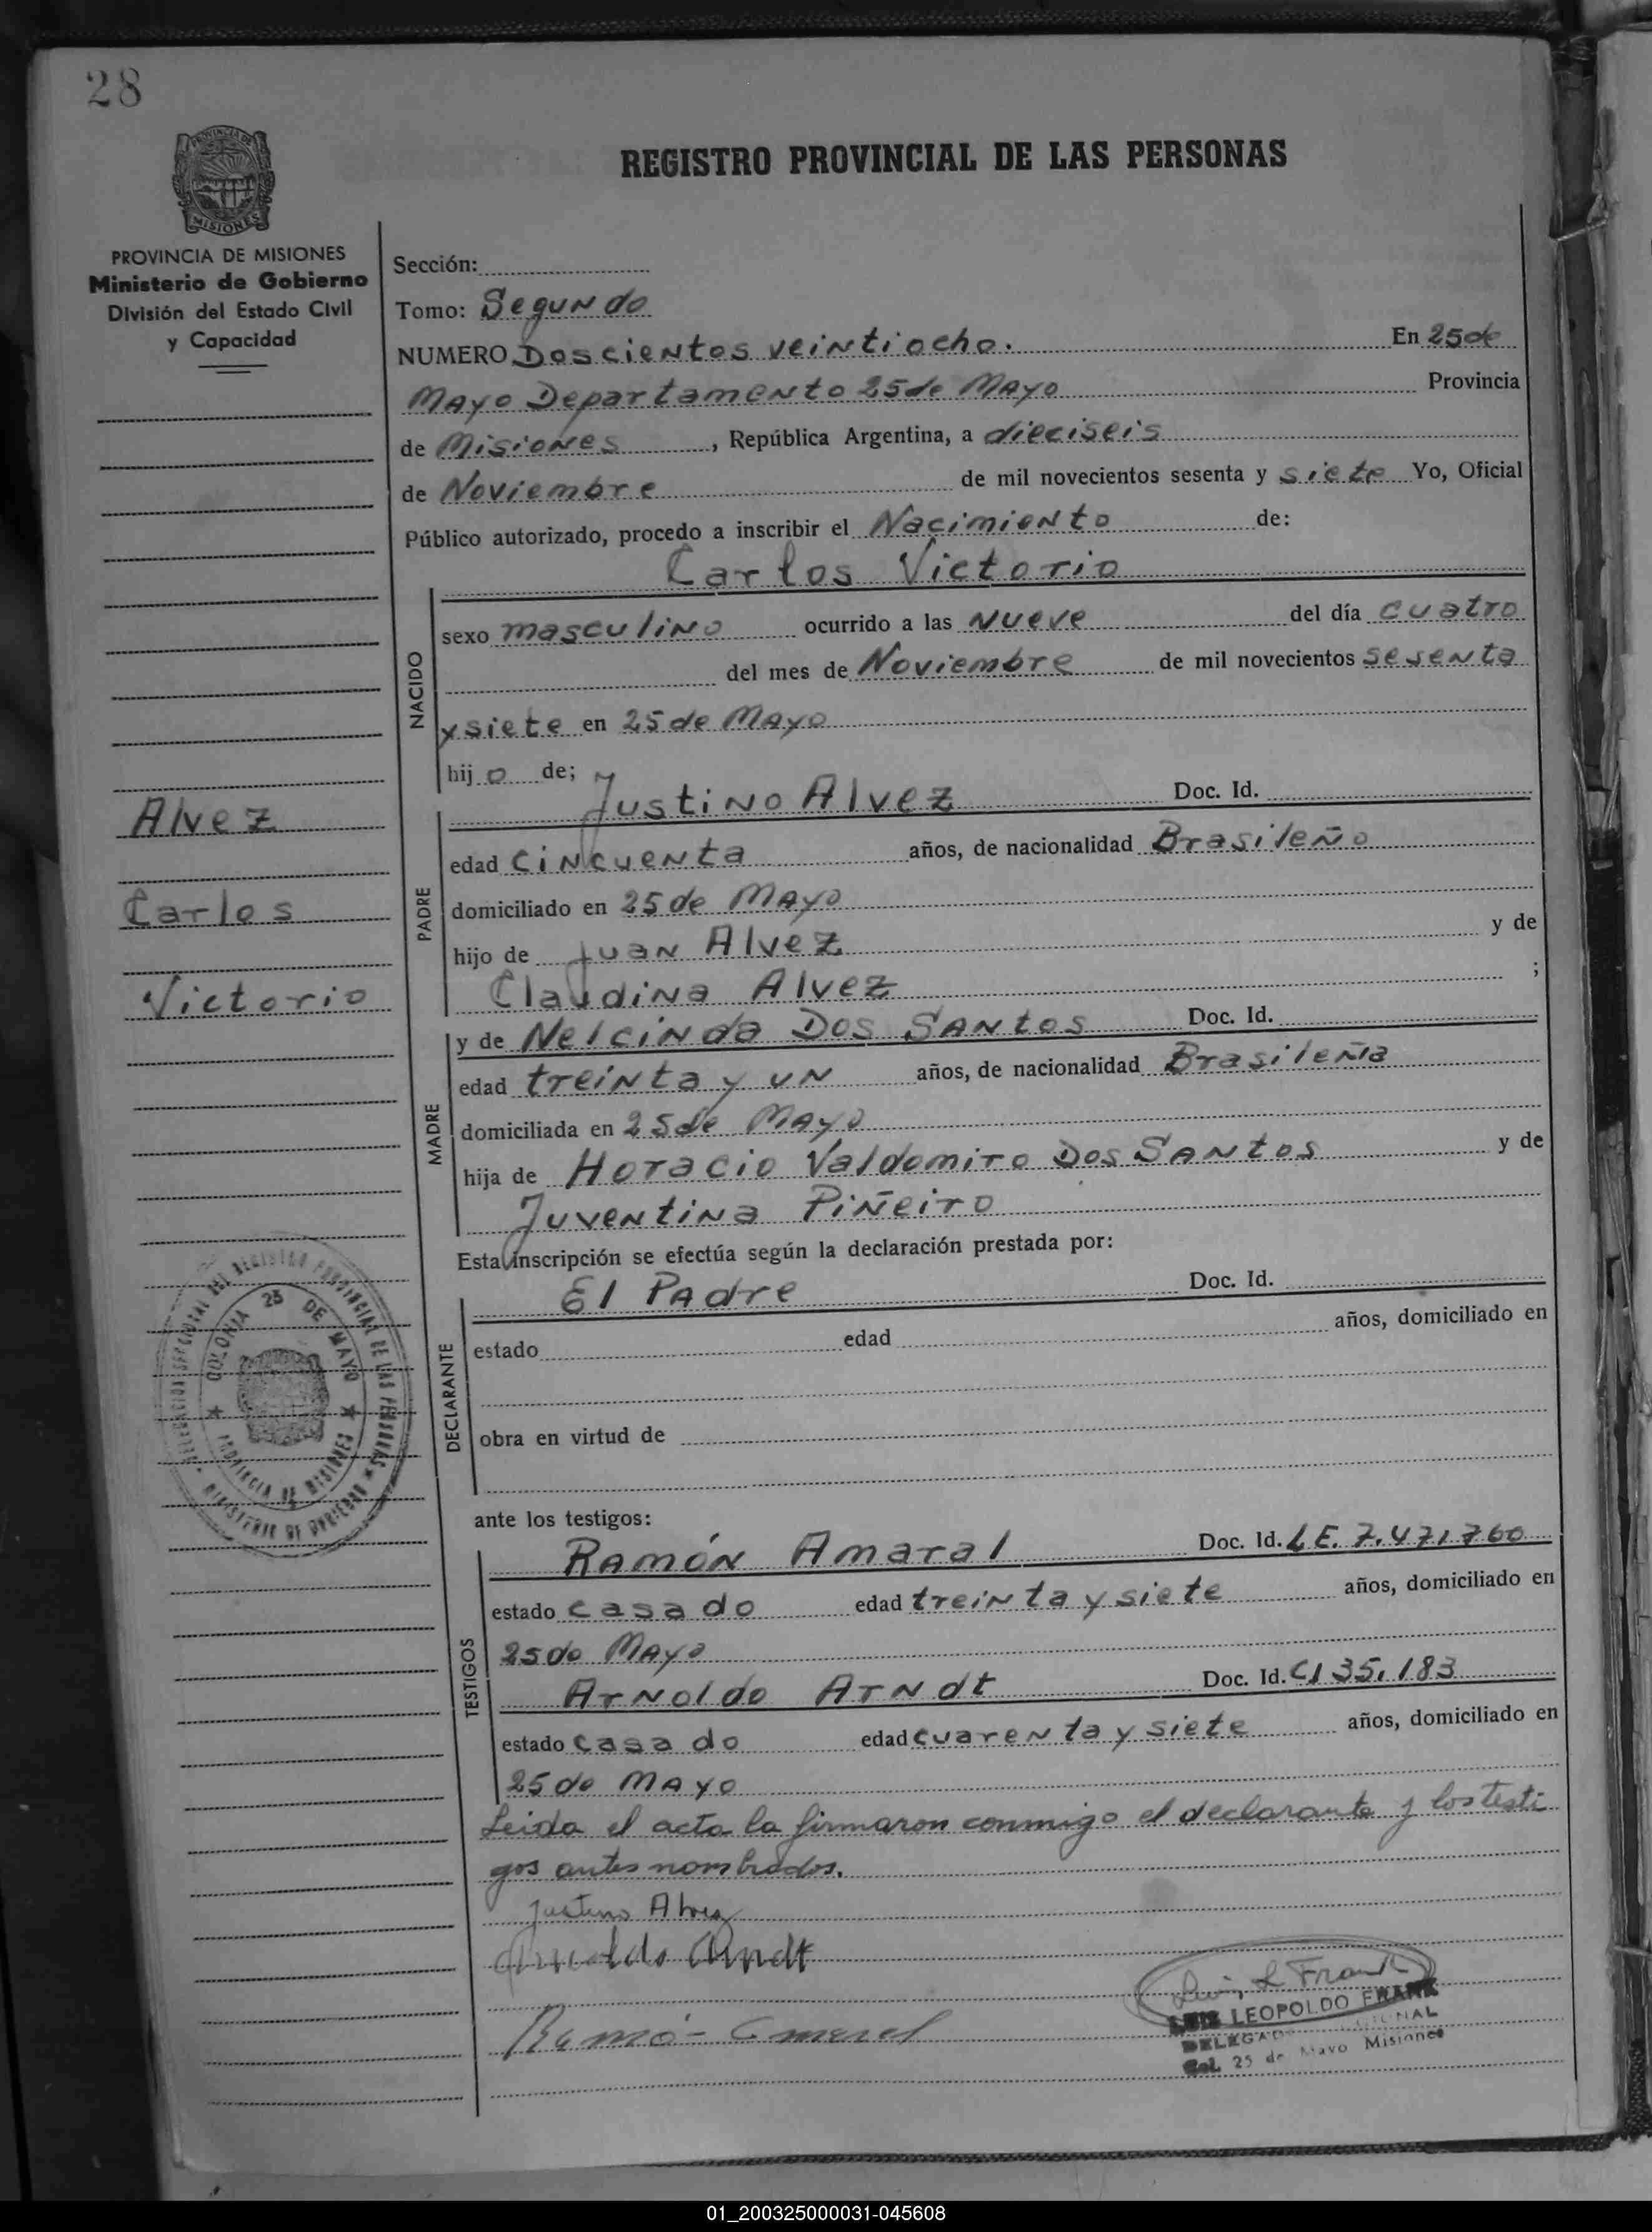 28
PROVINCIA DE MISIONES
REGISTRO PROVINCIAL DE LAS PERSONAS
PROVINCIA DE MISIONES
Ministerio de Gobierno
División del Estado Civil
y Capacidad
Sección:
Tomo: Segundo
NUMERO Doscientos veintiocho. En 25 de
Mayo Departamento 25 de Mayo Provincia
de Misiones, República Argentina, a dieciseis
de Noviembre de mil novecientos sesenta y siete Yo, Oficial
Público autorizado, procedo a inscribir el Nacimiento de:
Carlos Victorio
NACIDO
sexo masculino ocurrido a las Nueve del día cuatro
del mes de Noviembre de mil novecientos sesenta
y siete en 25 de Mayo
hijo de;
Justino Alvez Doc. Id.
Alvez
Carlos
Victorio
PADRE
edad cincuenta años, de nacionalidad Brasileño
domiciliado en 25 de Mayo
hijo de Juan Alvez y de
Claudina Alvez ;
MADRE
y de Nelcinda Dos Santos Doc. Id.
edad treinta y un años, de nacionalidad Brasileña
domiciliada en 25 de Mayo
hija de Horacio Valdomiro Dos Santos y de
Juventina Piñeiro
Esta inscripción se efectúa según la declaración prestada por:
El Padre Doc. Id.
DECLARANTE
estado edad años, domiciliado en
obra en virtud de
COLONIA 25 DE MAYO
PROVINCIA DE MISIONES
DEL REGISTRO PROVINCIAL DE LAS PERSONAS
MINISTERIO DE GOBIERNO
ante los testigos:
TESTIGOS
Ramón Amaral Doc. Id. L.E. 7.471.760
estado casado edad treinta y siete años, domiciliado en
25 de Mayo
Arnoldo Arndt Doc. Id. CI 35.183
estado casado edad cuarenta y siete años, domiciliado en
25 de Mayo
Leida el acta la firmaron conmigo el declarante y los testi
gos antes nombrados.
Justino Alvez
Arnoldo Arndt
Luis L Frank
LUIS LEOPOLDO FRANK
Col. 25 de Mayo Misiones
Ramó- Amerel
01_200325000031-045608